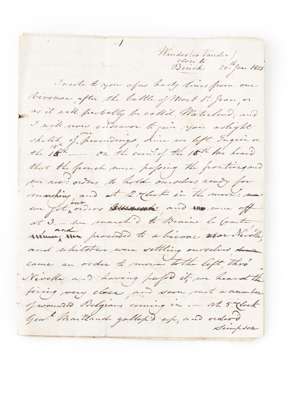 1
close to
20th June 1815
I wrote to you a few hasty lines from our
Bivouac after the battle of Mont St Jean, or
as it will probably be called Waterloo, and
I will now endeavor to give you a slight
sketch of proceedings since we left Enghien on
the 16th. On the eve of the 15th we heard
that the french were passing the frontier and
we had orders to hold ourselves ready for
marching and at 2 o'Clock in the morn'g
we got our orders and
at 3 marched to Braine le Comte
and proceeded to a bivouac near Nivelles,
and whilst we were settling ourselves
came an order to move to the left thro'
Nivelles and having passed it, we heard the
firing very close, and soon met a number
of wounded Belgians coming in — At 5 o'Clock
Genl. Maitland galloped up, and ordered